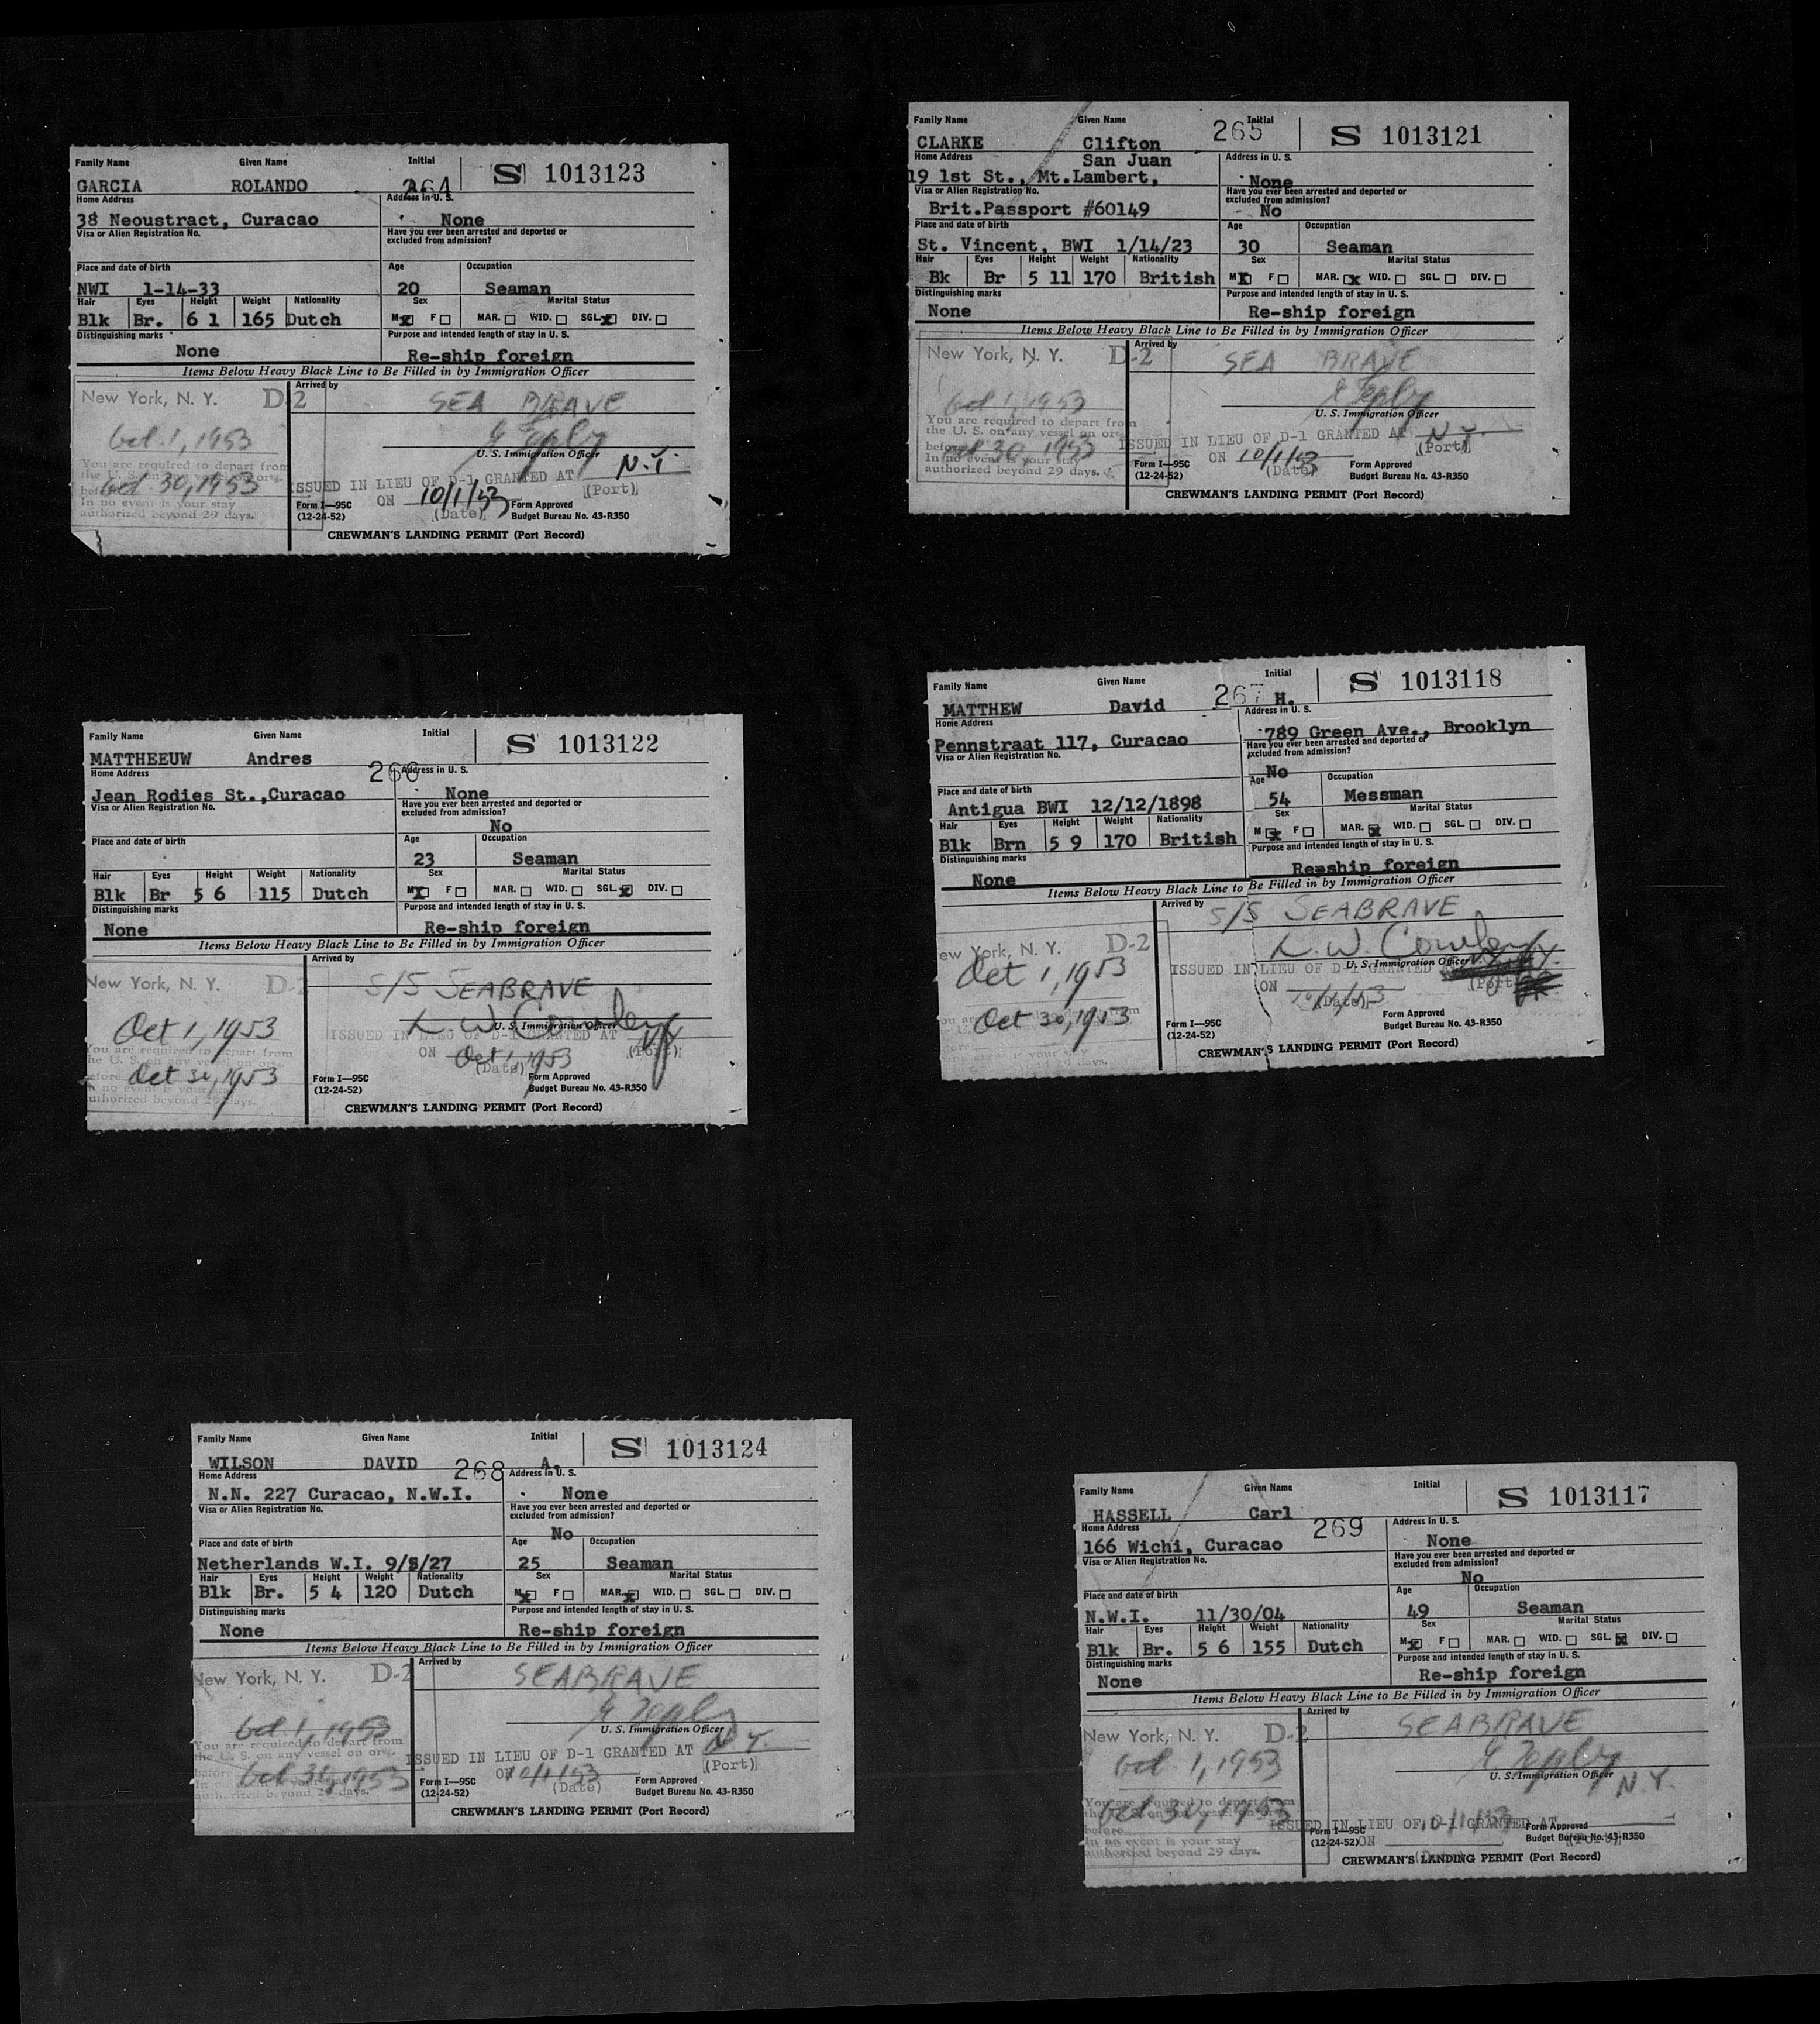 Family Name Given Name Initial S 1013123
GARCIA ROLANDO A. 264
Home Address Address in U. S.
38 Neoustract, Curacao None
Visa or Alien Registration No. Have you ever been arrested and deported or
excluded from admission?
Place and date of birth Age Occupation
NWI 1-14-33 20 Seaman
Hair Eyes Height Weight Nationality Sex Marital Status
Blk Br. 6 1 165 Dutch M X F MAR. WID. SGL. X DIV.
Distinguishing marks Purpose and intended length of stay in U. S.
None Re-ship foreign
Items Below Heavy Black Line to Be Filled in by Immigration Officer
New York, N. Y. D-2 Arrived by SEA BRAVE
Oct. 1, 1953
U. S. Immigration Officer
You are required to depart from
the U. S. on any vessel on or
before Oct. 30, 1953
In no event is your stay
authorized beyond 29 days.
ISSUED IN LIEU OF D-1 GRANTED AT N.Y.
(Port)
ON 10/1/53
(Date)
Form I—95C Form Approved
(12-24-52) Budget Bureau No. 43-R350
CREWMAN'S LANDING PERMIT (Port Record)
Family Name Given Name Initial 265 S 1013121
CLARKE Clifton
Home Address San Juan Address in U. S.
19 1st St., Mt.Lambert, None
Visa or Alien Registration No. Have you ever been arrested and deported or
excluded from admission?
Brit.Passport #60149 No
Place and date of birth Age Occupation
St. Vincent, BWI 1/14/23 30 Seaman
Hair Eyes Height Weight Nationality Sex Marital Status
Bk Br 5 11 170 British M X F MAR. X WID. SGL. DIV.
Distinguishing marks Purpose and intended length of stay in U. S.
None Re-ship foreign
Items Below Heavy Black Line to Be Filled in by Immigration Officer
New York, N. Y. D-2 Arrived by SEA BRAVE
Oct 1, 1953
U. S. Immigration Officer
You are required to depart from
the U. S. on any vessel on or
before Oct 30, 1953
In no event is your stay
authorized beyond 29 days.
ISSUED IN LIEU OF D-1 GRANTED AT N.Y.
(Port)
ON 10/1/53
(Date)
Form I—95C Form Approved
(12-24-52) Budget Bureau No. 43-R350
CREWMAN'S LANDING PERMIT (Port Record)
Family Name Given Name Initial S 1013122
MATTHEEUW Andres
Home Address 266 Address in U. S.
Jean Rodies St.,Curacao None
Visa or Alien Registration No. Have you ever been arrested and deported or
excluded from admission?
No
Place and date of birth Age Occupation
23 Seaman
Hair Eyes Height Weight Nationality Sex Marital Status
Blk Br 5 6 115 Dutch M X F MAR. WID. SGL. X DIV.
Distinguishing marks Purpose and intended length of stay in U. S.
None Re-ship foreign
Items Below Heavy Black Line to Be Filled in by Immigration Officer
New York, N. Y. D-2 Arrived by S/S SEABRAVE
Oct 1, 1953
U. S. Immigration Officer
You are required to depart from
the U. S. on any vessel
before Oct 30, 1953
In no event is your stay
authorized beyond 29 days.
ISSUED IN LIEU OF D-1 GRANTED AT NY
(Port)
ON Oct 1, 1953
(Date)
Form I—95C Form Approved
(12-24-52) Budget Bureau No. 43-R350
CREWMAN'S LANDING PERMIT (Port Record)
Family Name Given Name Initial S 1013118
MATTHEW David 267 H.
Home Address Address in U. S.
Pennstraat 117, Curacao 789 Green Ave., Brooklyn
Visa or Alien Registration No. Have you ever been arrested and deported or
excluded from admission?
No
Place and date of birth Age Occupation
Antigua BWI 12/12/1898 54 Messman
Hair Eyes Height Weight Nationality Sex Marital Status
Blk Brn 5 9 170 British M X F MAR. X WID. SGL. DIV.
Distinguishing marks Purpose and intended length of stay in U. S.
None Re-ship foreign
Items Below Heavy Black Line to Be Filled in by Immigration Officer
ew York, N. Y. D-2 Arrived by S/S SEABRAVE
Oct 1, 1953
U. S. Immigration Officer
Oct 30, 1953
ISSUED IN LIEU OF D-1 GRANTED
(Port)
ON 10/1/53
(Date)
Form I—95C Form Approved
(12-24-52) Budget Bureau No. 43-R350
CREWMAN'S LANDING PERMIT (Port Record)
Family Name Given Name Initial S 1013124
WILSON DAVID 268 A.
Home Address Address in U. S.
N.N. 227 Curacao, N.W.I. None
Visa or Alien Registration No. Have you ever been arrested and deported or
excluded from admission?
No
Place and date of birth Age Occupation
Netherlands W.I. 9/5/27 25 Seaman
Hair Eyes Height Weight Nationality Sex Marital Status
Blk Br. 5 4 120 Dutch M X F MAR. X WID. SGL. DIV.
Distinguishing marks Purpose and intended length of stay in U. S.
None Re-ship foreign
Items Below Heavy Black Line to Be Filled in by Immigration Officer
New York, N. Y. D-2 Arrived by SEABRAVE
Oct 1, 1953
U. S. Immigration Officer
You are required to depart from
the U. S. on any vessel on or
before Oct 30, 1953
authorized beyond 29 days.
ISSUED IN LIEU OF D-1 GRANTED AT N.Y.
(Port)
ON 10/1/53
(Date)
Form I—95C Form Approved
(12-24-52) Budget Bureau No. 43-R350
CREWMAN'S LANDING PERMIT (Port Record)
Family Name Given Name Initial S 1013117
HASSELL Carl 269
Home Address Address in U. S.
166 Wichi, Curacao None
Visa or Alien Registration No. Have you ever been arrested and deported or
excluded from admission?
No
Place and date of birth Age Occupation
N.W.I. 11/30/04 49 Seaman
Hair Eyes Height Weight Nationality Sex Marital Status
Blk Br. 5 6 155 Dutch M X F MAR. WID. SGL. X DIV.
Distinguishing marks Purpose and intended length of stay in U. S.
None Re-ship foreign
Items Below Heavy Black Line to Be Filled in by Immigration Officer
New York, N. Y. D-2 Arrived by SEABRAVE
Oct 1, 1953
U. S. Immigration Officer N.Y.
You are required to depart from
Oct 30, 1953
before
In no event is your stay
authorized beyond 29 days.
ISSUED IN LIEU OF D-1 GRANTED AT
10/1/53
ON
Form I—95C Form Approved
(12-24-52) Budget Bureau No. 43-R350
CREWMAN'S LANDING PERMIT (Port Record)